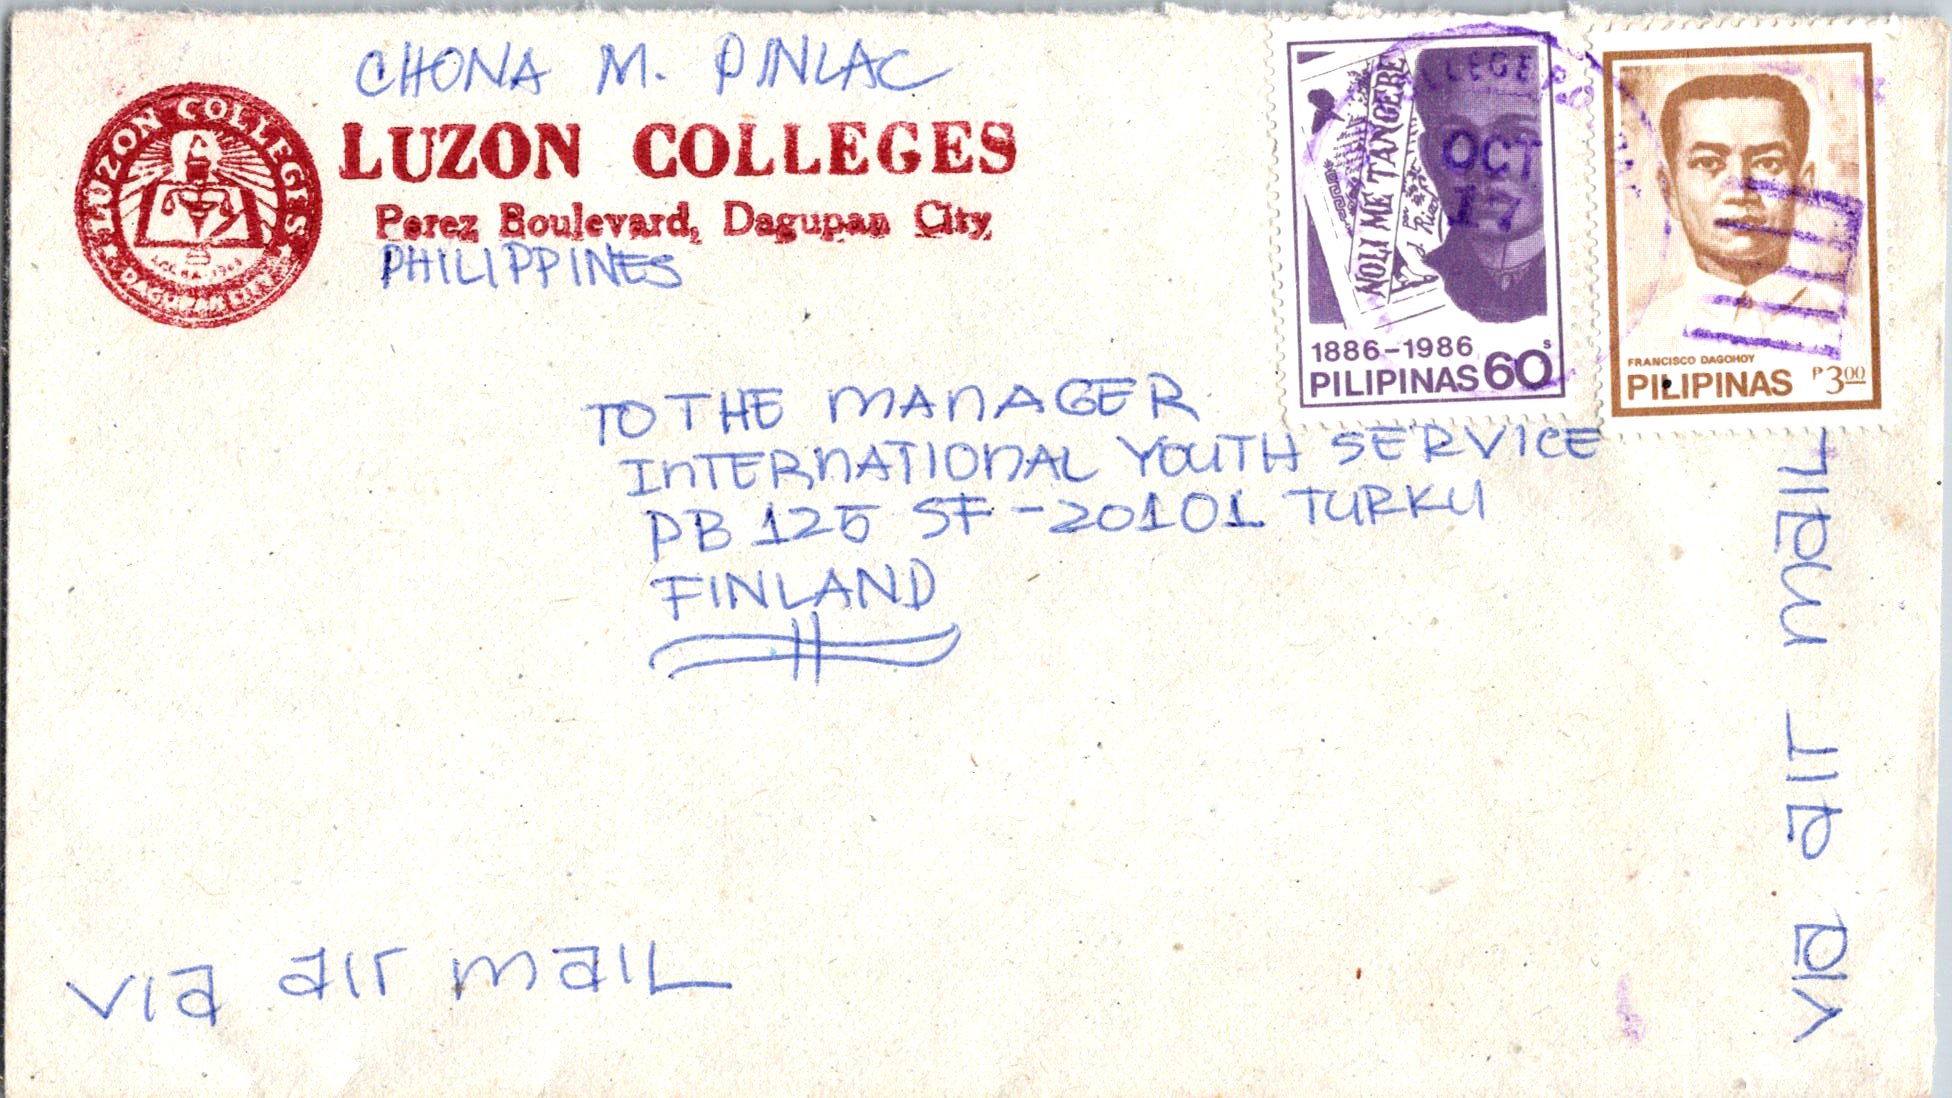 CHONA M. PINLAC
LUZON COLLEGES
Perez Boulevard, Dagupan City,
PHILIPPINES
LUZON COLLEGES
DAGUPAN CITY
NOLI ME TANGERE
1886-1986
PILIPINAS 60s
OCT
17
FRANCISCO DAGOHOY
PILIPINAS ₱3.00
TO THE MANAGER
INTERNATIONAL YOUTH SERVICE
PB 125 SF-20101 TURKU
FINLAND
via air mail
via air mail